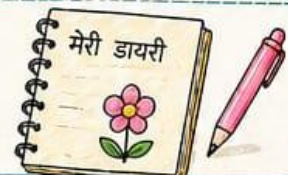 मेरी डायरी